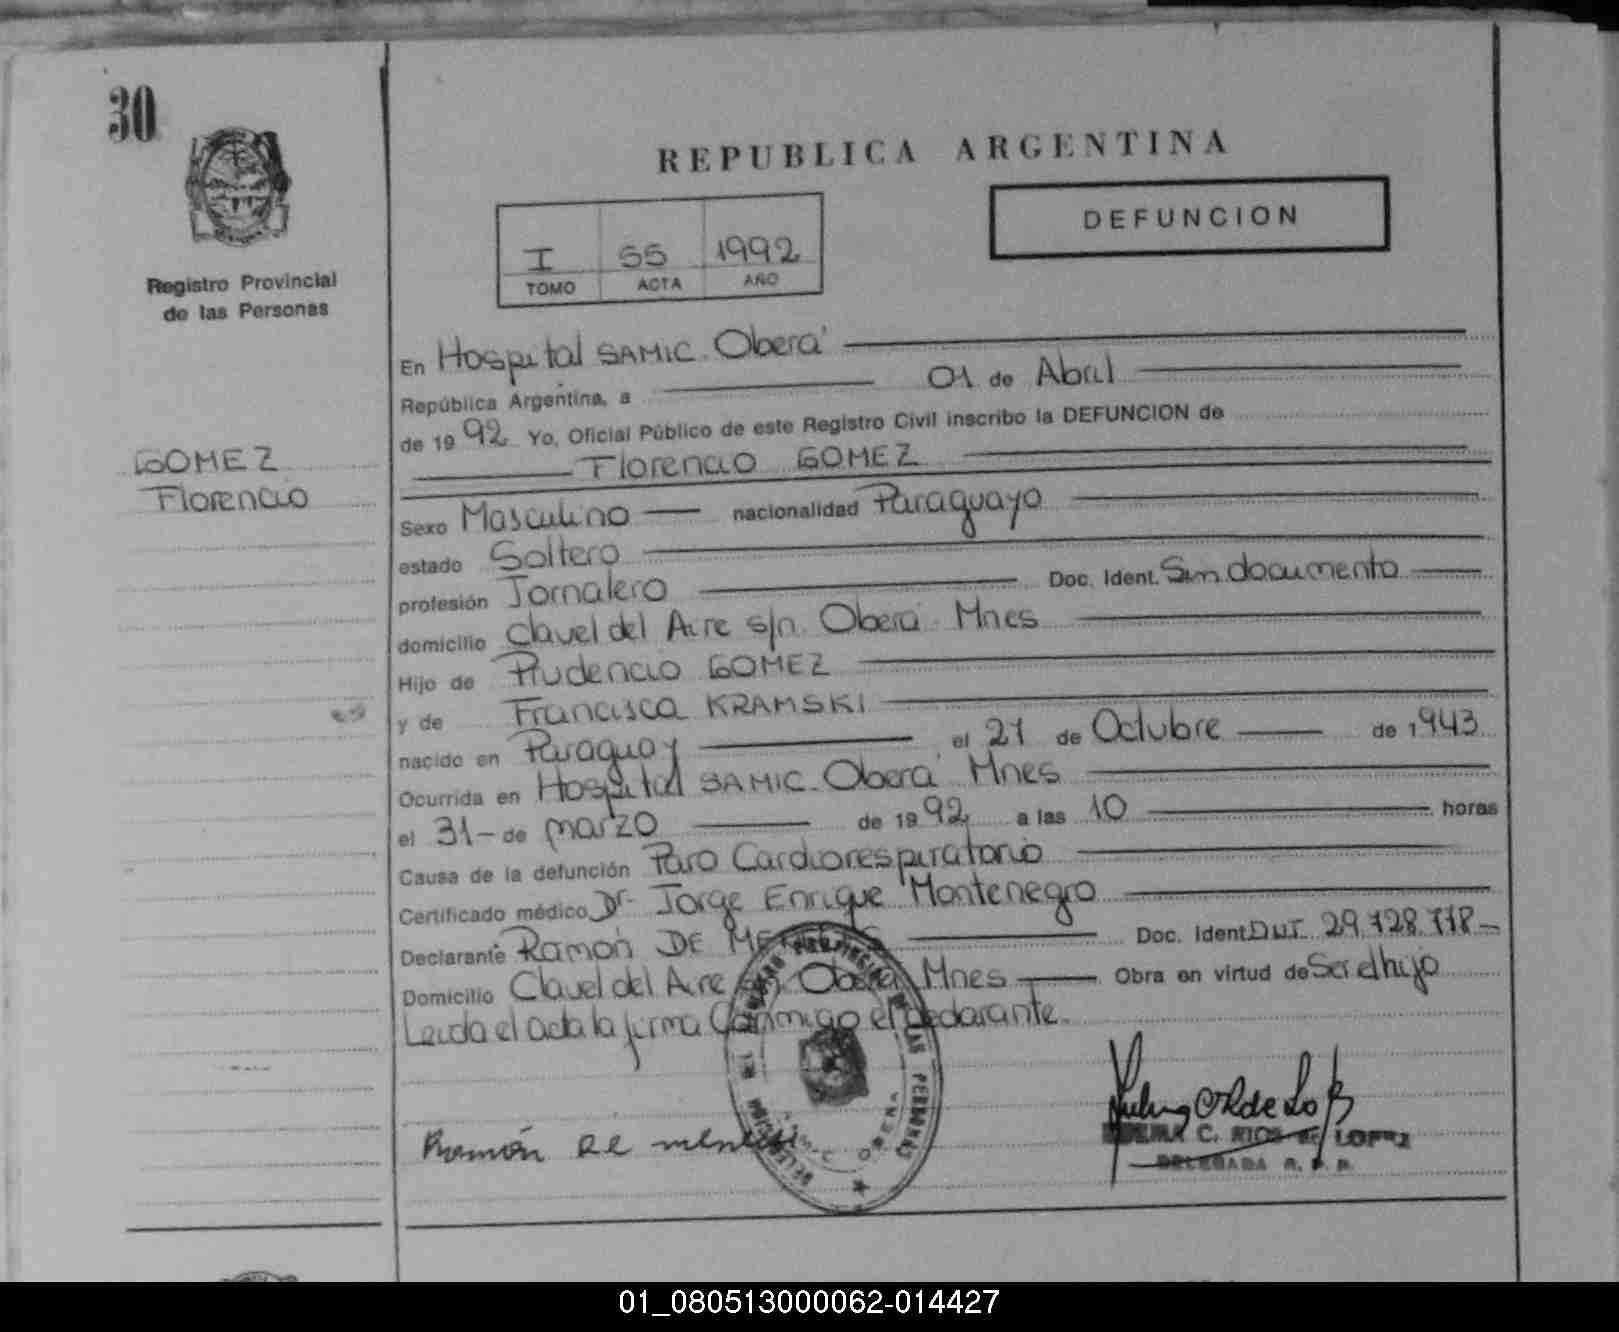 30
REPUBLICA ARGENTINA
DEFUNCION
I 55 1992
TOMO ACTA AÑO
Registro Provincial
de las Personas
GOMEZ
Florencio
En Hospital SAMIC. Oberá
República Argentina, a 01 de Abril
de 1992 Yo, Oficial Público de este Registro Civil inscribo la DEFUNCION de
Florencio GOMEZ
Sexo Masculino nacionalidad Paraguayo
estado Soltero
profesión Jornalero Doc. Ident. Sin documento
domicilio Clavel del Aire s/n. Oberá - Mnes
Hijo de Prudencio GOMEZ
y de Francisca KRAMSKI
nacido en Paraguay el 27 de Octubre de 1943
Ocurrida en Hospital SAMIC. Oberá Mnes
el 31 - de marzo de 1992 a las 10 horas
Causa de la defunción Paro Cardiorespiratorio
Certificado médico Dr. Jorge Enrique Montenegro
Declarante Ramón DE Doc. Ident
Domicilio Clavel del Aire s/n. Oberá, Mnes Obra en virtud de Ser el hijo
Leida el acta la firma Conmigo el declarante.
Ramón de
C. RIOS DE LOPEZ
DELEGADA R. P. P.
01_080513000062-014427